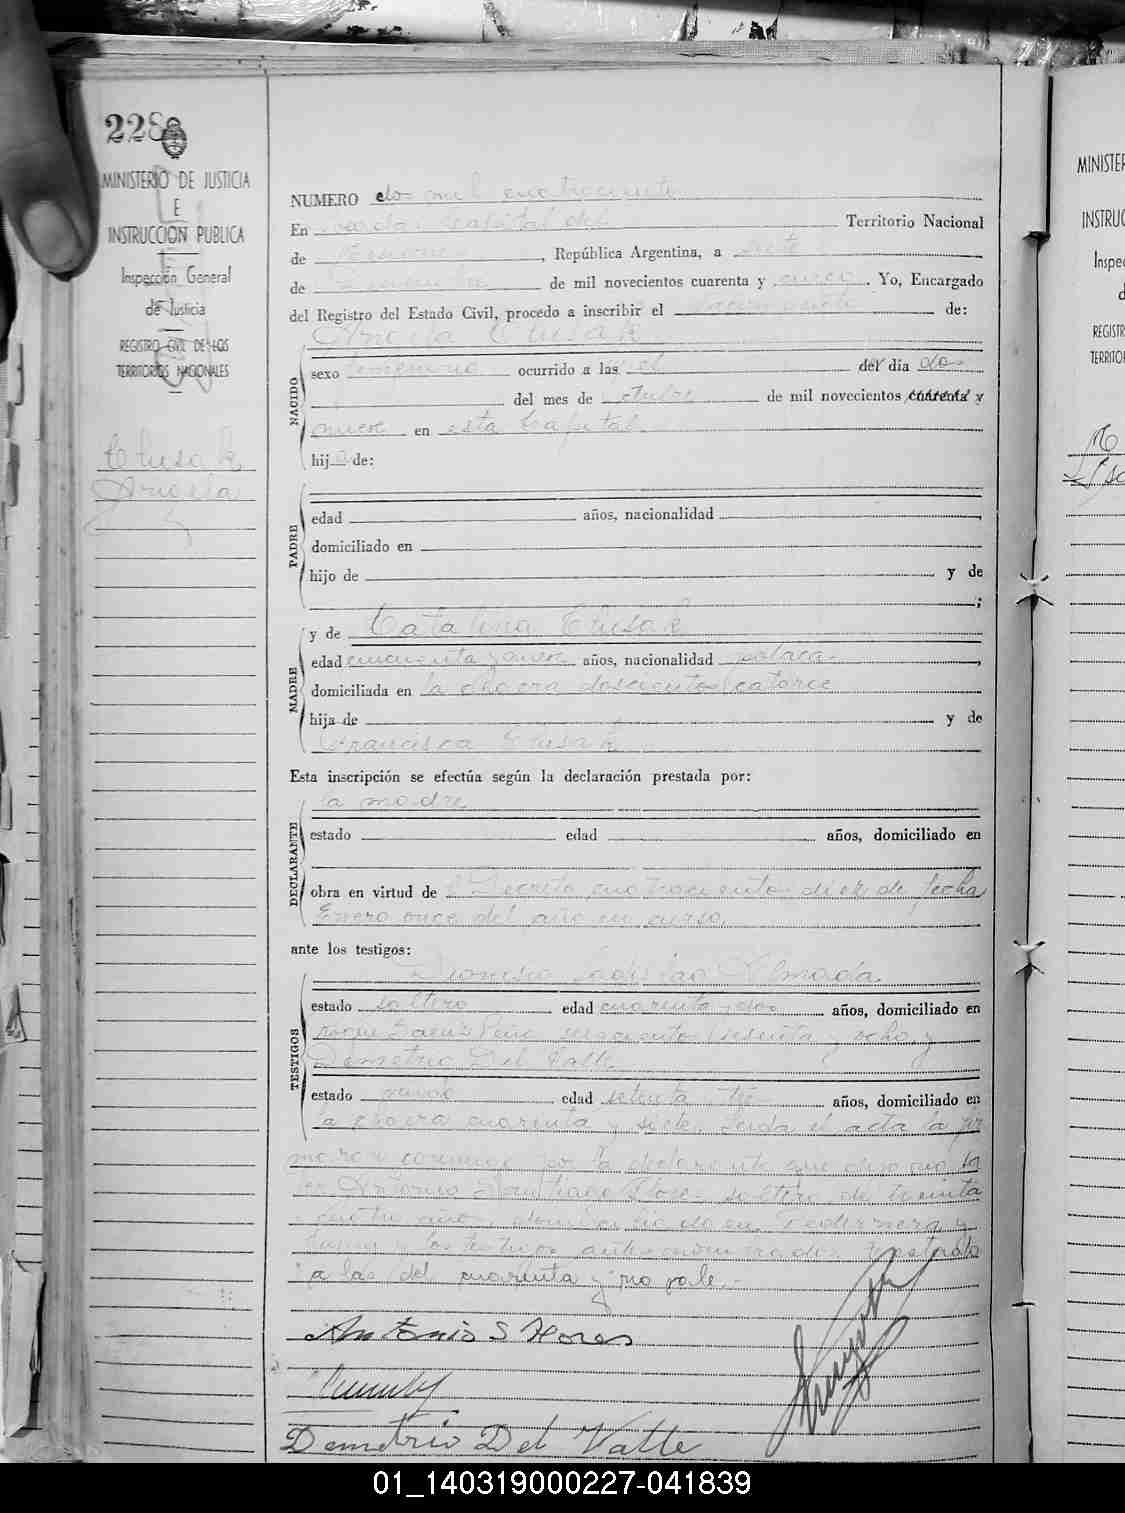 228
MINISTERIO DE JUSTICIA
E
INSTRUCCION PUBLICA
Inspección General
de Justicia
REGISTRO CIVIL DE LOS
TERRITORIOS NACIONALES
Chusak
Angela
NUMERO dos mil cuatrocientos
En Posadas Capital del Territorio Nacional
de Misiones, República Argentina, a siete
de de mil novecientos cuarenta y cinco. Yo, Encargado
del Registro del Estado Civil, procedo a inscribir el nacimiento de:
Angela Chusak
NACIDO
sexo femenino ocurrido a las del del día dos
del mes de octubre de mil novecientos cuarenta y
nueve en esta Capital.
hija de:
PADRE
edad años, nacionalidad ,
domiciliado en
hijo de y de
;
MADRE
y de Catalina Chusak
edad cincuenta y nueve años, nacionalidad polaca ,
domiciliada en la chacra doscientos catorce
hija de y de
Francisca Chusak
Esta inscripción se efectúa según la declaración prestada por:
DECLARANTE
la madre
estado edad años, domiciliado en
obra en virtud de el Decreto cuatrocientos diez de fecha
Enero once del año en curso.
ante los testigos:
TESTIGOS
Dionisio Ladislao Almada
estado soltero edad cuarenta y dos años, domiciliado en
Roque Saenz Peña seiscientos sesenta y ocho y
Demetrio Del Valle
estado viudo edad setenta y tres años, domiciliado en
la chacra cuarenta y siete. Leida el acta la fir
maron conmigo por la declarante que dijo no sa
ber Antonio Santiago Flores soltero de treinta
y cuatro años domiciliado en Pedernera y
y los testigos antes nombrados. Testado
a las del cuarenta y no vale.-
Antonio S Flores
Demetrio Del Valle
MINISTER
INSTRUC
Inspec
d
REGISTR
TERRITO
01_140319000227-041839